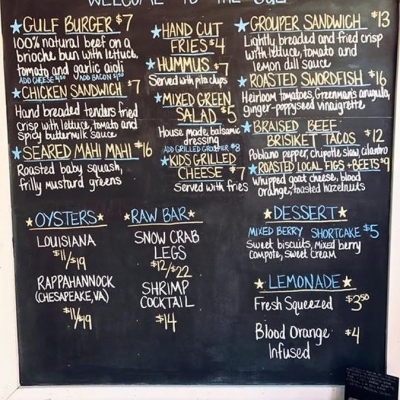 WELCOME TO THE
GULF BURGER $7
100% natural beef on a
brioche bun with lettuce,
tomato and garlic aioli
ADD CHEESE ADD BACON
CHICKEN SANDWICH $7
Hand breaded tenders fried
crisp with lettuce, tomato and
spicy buttermilk sauce
SEARED MAHI MAHI $16
Roasted baby squash,
frilly mustard greens
HAND CUT
FRIES $4
HUMMUS $7
Served with pita chips
MIXED GREEN
SALAD $5
House made, balsamic
dressing
ADD GRILLED GROUPER $8
KIDS GRILLED
CHEESE $7
Served with fries
GROUPER SANDWICH $13
Lightly breaded and fried crisp
with lettuce, tomato and
lemon dill sauce
ROASTED SWORDFISH $16
Heirloom tomatoes, Greenman's arugula,
ginger-poppyseed vinaigrette
BRAISED BEEF
BRISKET TACOS $12
Poblano pepper, chipotle slaw, cilantro
ROASTED LOCAL FIGS + BEETS $9
Whipped goat cheese, blood
orange, toasted hazelnuts
OYSTERS
LOUISIANA
$11/$19
RAPPAHANNOCK
(CHESAPEAKE, VA)
$11/$19
RAW BAR
SNOW CRAB
LEGS
$12/$22
SHRIMP
COCKTAIL
$14
DESSERT
MIXED BERRY SHORTCAKE $5
Sweet biscuits, mixed berry
compote, sweet cream
LEMONADE
Fresh Squeezed $3.50
Blood Orange $4
Infused